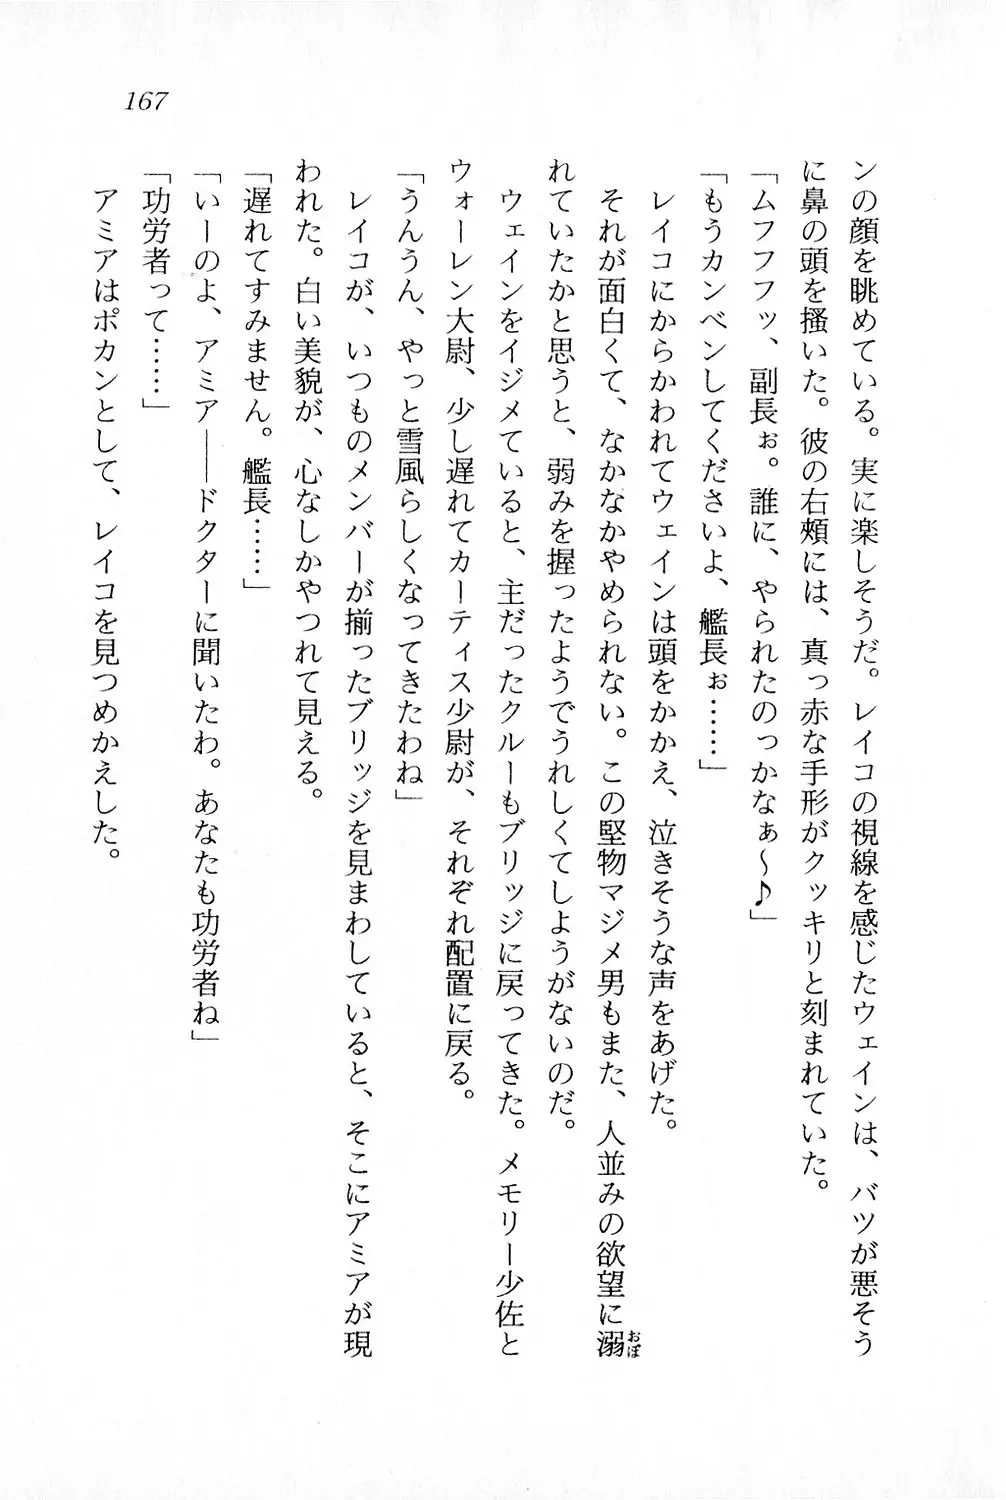 167
ンの顔を眺めている。実に楽しそうだ。レイコの視線を感じたウェインは、バツが悪そう
に鼻の頭を掻いた。彼の右頰には、真っ赤な手形がクッキリと刻まれていた。
「ムフフフッ、副長ぉ。誰に、やられたのっかなぁ～♪」
「もうカンベンしてくださいよ、艦長ぉ……」
レイコにからかわれてウェインは頭をかかえ、泣きそうな声をあげた。
それが面白くて、なかなかやめられない。この堅物マジメ男もまた、人並みの欲望に溺
おぼ
れていたかと思うと、弱みを握ったようでうれしくてしようがないのだ。
ウェインをイジメていると、主だったクルーもブリッジに戻ってきた。メモリー少佐と
ウォーレン大尉、少し遅れてカーティス少尉が、それぞれ配置に戻る。
「うんうん、やっと雪風らしくなってきたわね」
レイコが、いつものメンバーが揃ったブリッジを見まわしていると、そこにアミアが現
われた。白い美貌が、心なしかやつれて見える。
「遅れてすみません。艦長……」
「いーのよ、アミア――ドクターに聞いたわ。あなたも功労者ね」
「功労者って……」
アミアはポカンとして、レイコを見つめかえした。